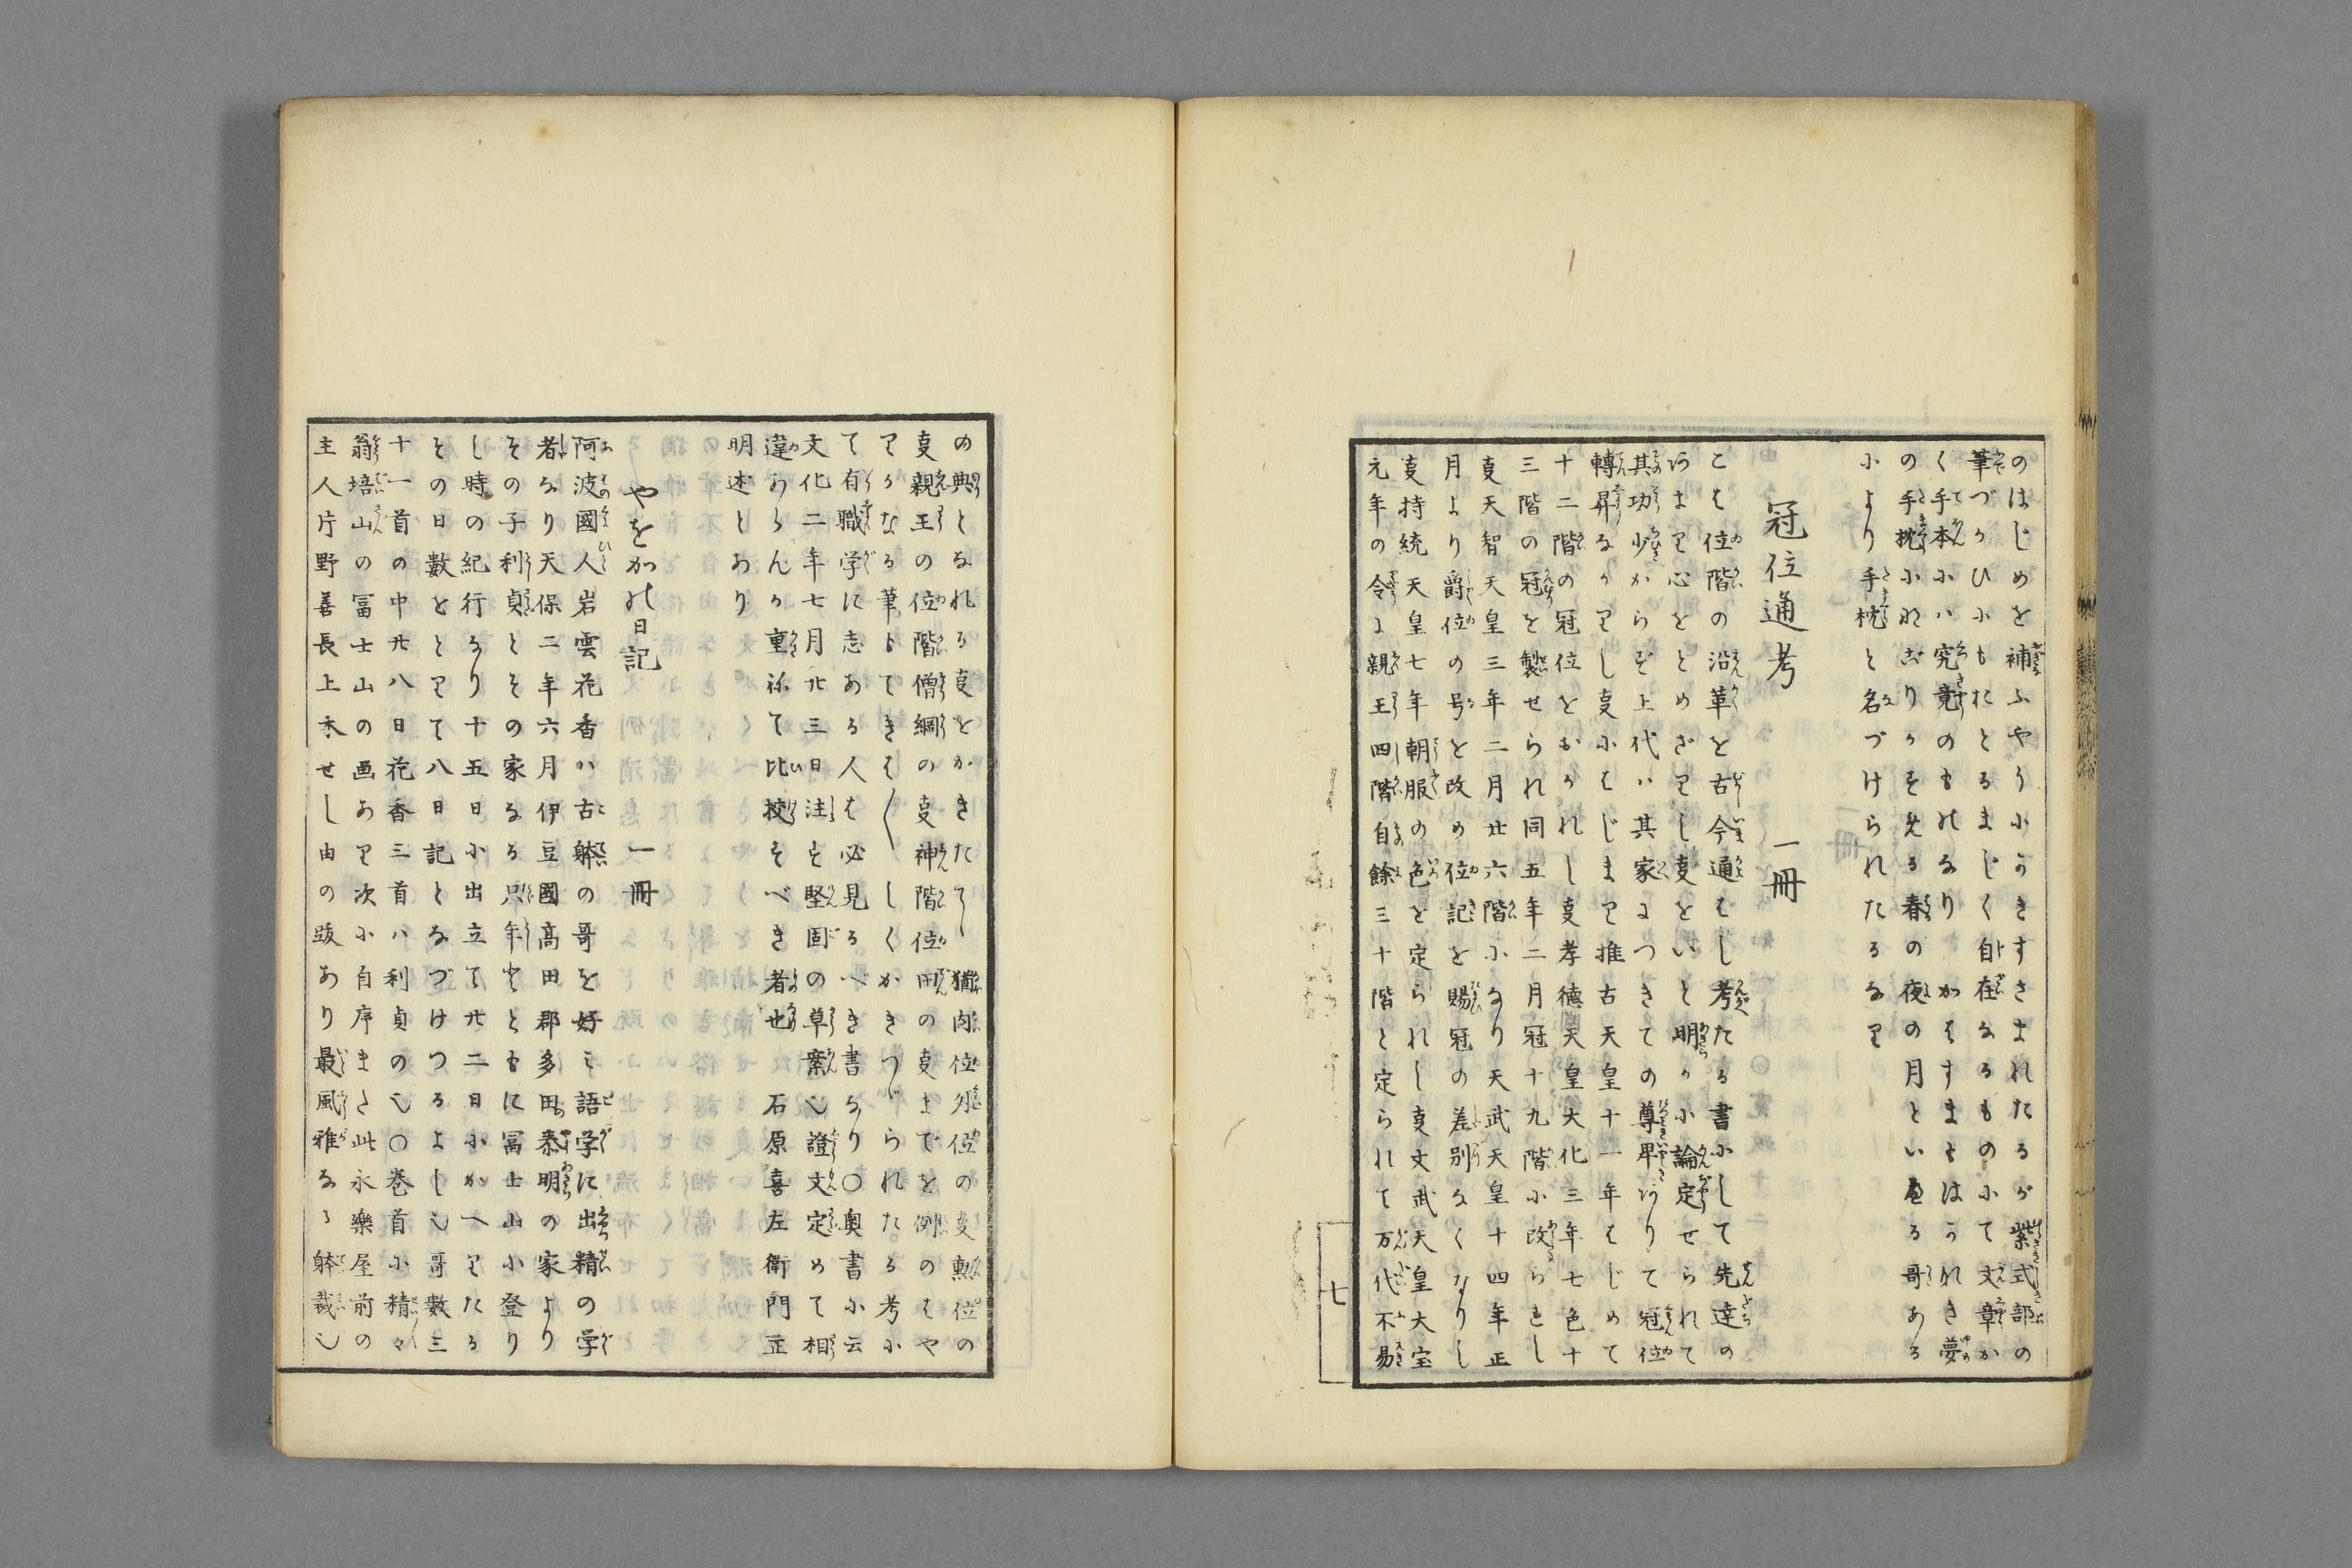 のはじめを補ふやうにうきすさまれたるが紫式部の
筆づかひにもたとるまじく自在なるものにて文章か
く手本にハ究竟のものなりかをすまとはうれき夢
の手枕にれぶりをみる春の夜の月といへる哥ある
により手枕と名づけられたるなり
冠位通考 一冊
こは位階の沿革を古今通はし考たる書にして先達の
いまだ心をとめざりし叓をいと明らかに論定せられて
其功少からず上代ハ其家につきての尊卑ありて冠位
轉昇るゝりし叓にはじまり推古天皇十一年はじめて
十二階の冠位をおかれし叓孝徳天皇大化三年七色十
三階の冠を製せられ同五年二月冠十九階に改られし
叓天智天皇三年二月廿六階になり天武天皇十四年正
月より爵位の号を改め位記を賜冠の差別なくなりし
叓持統天皇七年朝服の色を定られし叓文武天皇大宝
元年の令に親王四階自餘三十階と定られて万代不易
七
の典となれる叓をかきたてし猶内位外位の叓勲位の
叓親王の位階僧綱の叓神階位田の叓までを例のはや
りかなる筆してきは〱しくかきつゞられたる考に
て有職学に志ある人は必見るべき書なり〇奥書に云
文化二年七月廿三日注を堅固の草案也證文定めて相
違あらんか重祢て比挍そべき者也石原喜左衛門正
明述とあり
やをかの日記 一冊
阿波國人岩雲花香ハ古躰の哥を好ミ語学に出精の学
者なり天保二年六月伊豆國髙田郡多田泰明の家より
その子利貞とその家なる只年とともに冨士山に登り
し時の紀行なり十五日に出立て廿二日にかへりたる
その日數をとりて八日記となづけつるよし也哥數三
十一首の中廿八日花香三首ハ利貞の也〇巻首に精々
翁培山の冨士山の画あり次に自序また此永樂屋前の
主人片野善長上木せし由の跋あり最風雅なる躰裁也